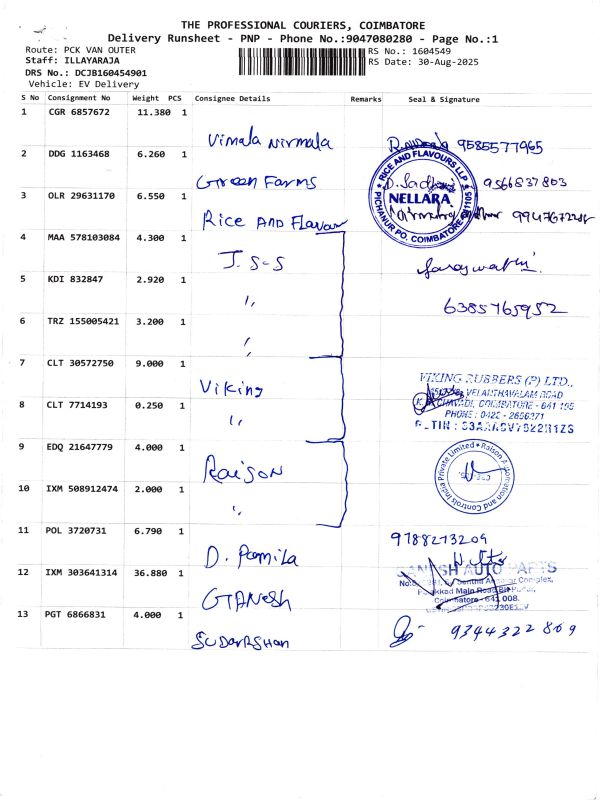 THE PROFESSIONAL COURIERS, COIMBATORE
Delivery Runsheet - PNP - Phone No.:9047080280 - Page No.:1
Route: PCK VAN OUTER
RS No.: 1604549
Staff: ILLAYARAJA
RS Date: 30-Aug-2025
DRS No.: DCJB160454901
Vehicle: EV Delivery
S No Consignment No Weight PCS Consignee Details Remarks Seal & Signature
1 CGR 6857672 11.380 1 Vimala Nirmala 9585577965
2 DDG 1163468 6.260 1 Green Farms 9566837803
RICE AND FLAVOURS LLP
NELLARA
PICHANUR PO. COIMBATORE
3 OLR 29631170 6.550 1 Rice AND Flavour
4 MAA 578103084 4.300 1 J.S-S Saraswathi.
5 KDI 832847 2.920 1 ,, 6385765952
6 TRZ 155005421 3.200 1 ,,
7 CLT 30572750 9.000 1 Viking
VIKING RUBBERS (P) LTD.,
VELANTHAVALAM ROAD
CHAVADI, COIMBATORE - 641 105
PHONE : 0422 - 2656371
8 CLT 7714193 0.250 1 ,,
9 EDQ 21647779 4.000 1 Raison
Raison Automation and Controls India Private Limited
10 IXM 508912474 2.000 1 ,,
11 POL 3720731 6.790 1 D. Pamila 9788273209
12 IXM 303641314 36.880 1 GANesh
AUTO PARTS
Complex,
Palakkad Main Road
Coimbatore - 641 008.
13 PGT 6866831 4.000 1 SUDarshan 9344322869